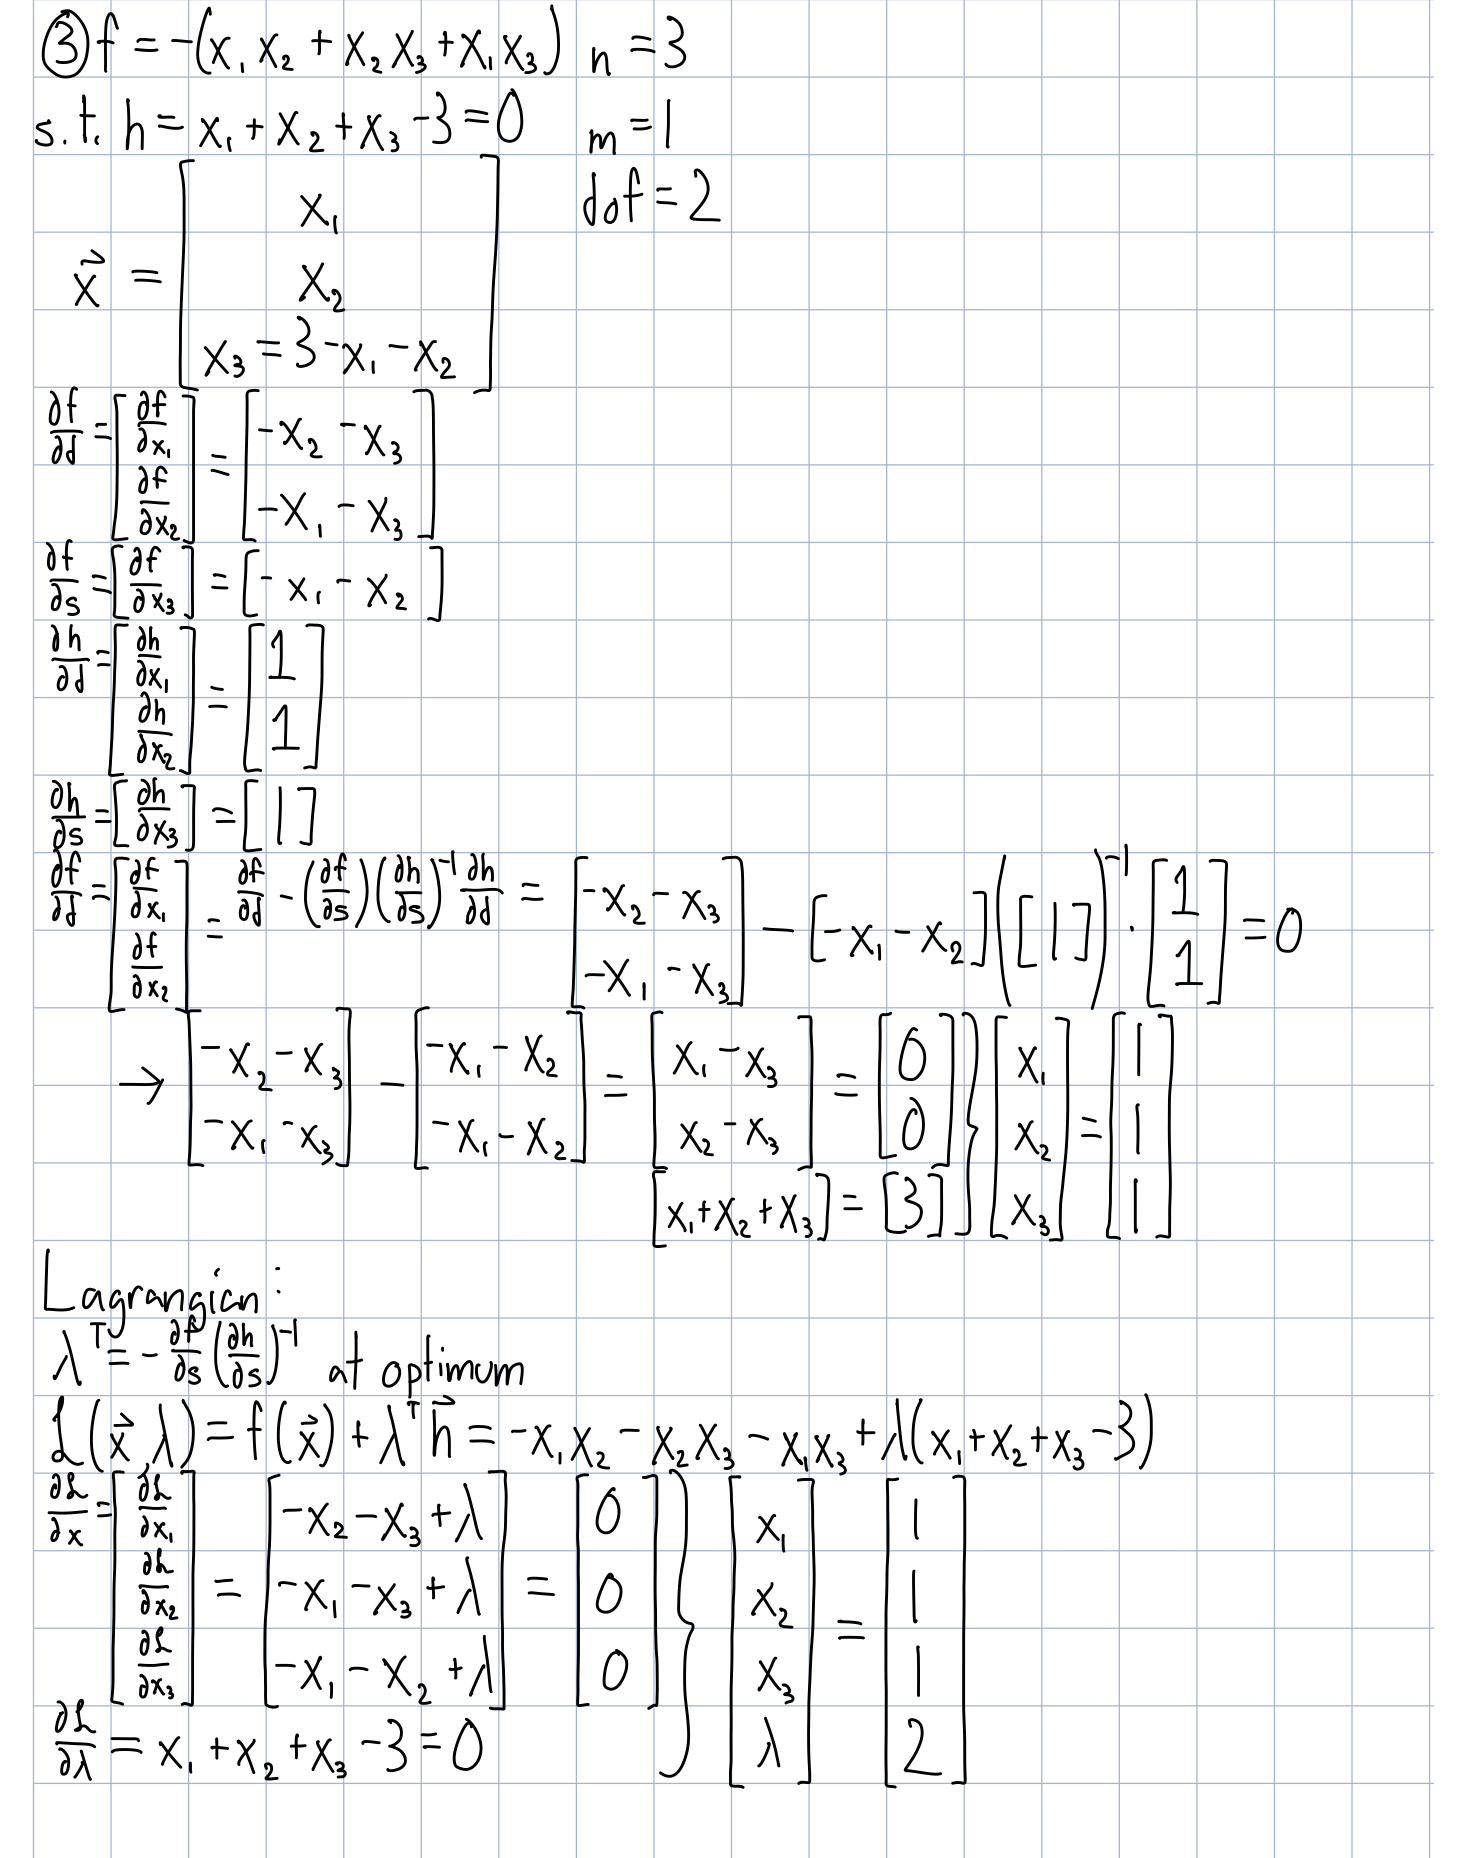 ③ f = -(x₁x₂ + x₂x₃ + x₁x₃) n = 3
s.t. h = x₁ + x₂ + x₃ - 3 = 0 m = 1
dof = 2
x⃗ = [x₁; x₂; x₃ = 3 - x₁ - x₂]
∂f/∂d = [∂f/∂x₁; ∂f/∂x₂] = [-x₂ - x₃; -x₁ - x₃]
∂f/∂s = [∂f/∂x₃] = [-x₁ - x₂]
∂h/∂d = [∂h/∂x₁; ∂h/∂x₂] = [1; 1]
∂h/∂s = [∂h/∂x₃] = [1]
∂f/∂d = [∂f/∂x₁; ∂f/∂x₂] = ∂f/∂d - (∂f/∂s)(∂h/∂s)⁻¹ ∂h/∂d = [-x₂ - x₃; -x₁ - x₃] - [-x₁ - x₂]([1])⁻¹ · [1; 1] = 0
→ [-x₂ - x₃; -x₁ - x₃] - [-x₁ - x₂; -x₁ - x₂] = [x₁ - x₃; x₂ - x₃] = [0; 0] } [x₁; x₂; x₃] = [1; 1; 1]
[x₁ + x₂ + x₃] = [3]
Lagrangian:
λᵀ = -∂f/∂s (∂h/∂s)⁻¹ at optimum
ℒ(x⃗, λ) = f(x⃗) + λᵀh⃗ = -x₁x₂ - x₂x₃ - x₁x₃ + λ(x₁ + x₂ + x₃ - 3)
∂ℒ/∂x = [∂ℒ/∂x₁; ∂ℒ/∂x₂; ∂ℒ/∂x₃] = [-x₂ - x₃ + λ; -x₁ - x₃ + λ; -x₁ - x₂ + λ] = [0; 0; 0] } [x₁; x₂; x₃; λ] = [1; 1; 1; 2]
∂ℒ/∂λ = x₁ + x₂ + x₃ - 3 = 0